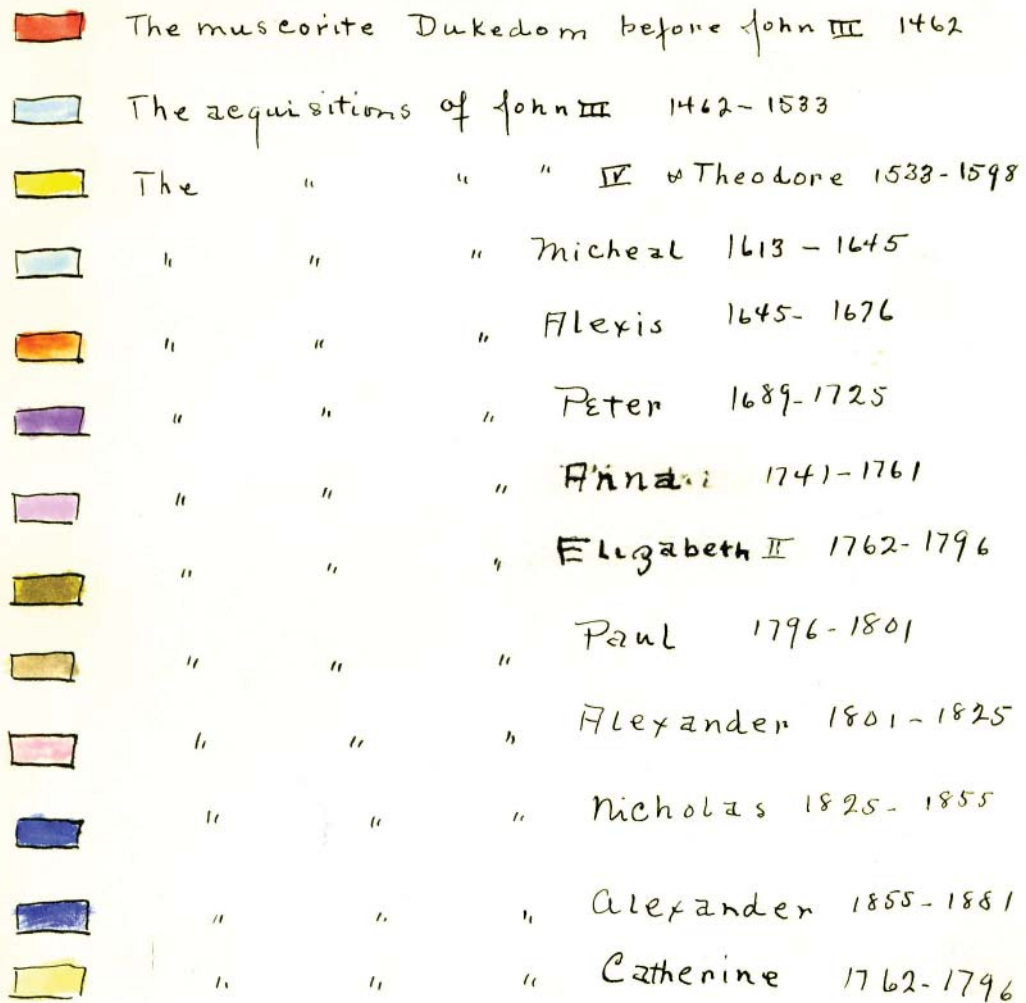 The muscorite Dukedom before John III 1462
The acquisitions of John III 1462-1533
The " " " IV & Theodore 1533-1598
" " " Micheal 1613-1645
" " " Alexis 1645-1676
" " " Peter 1689-1725
" " " Anna 1741-1761
" " " Elizabeth II 1762-1796
" " " Paul 1796-1801
" " " Alexander 1801-1825
" " " Nicholas 1825-1855
" " " Alexander 1855-1881
" " " Catherine 1762-1796